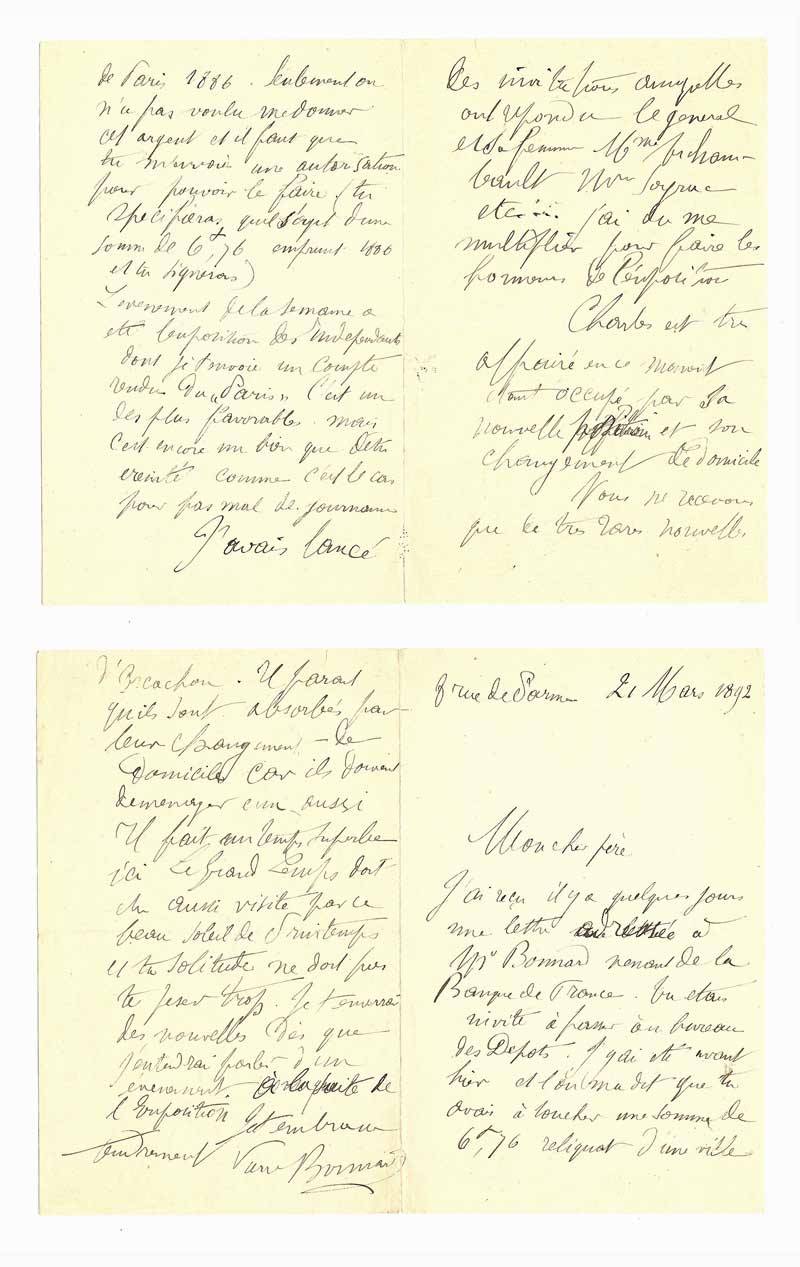 8 rue de Parme 21 Mars 1892
Mon cher père
J'ai reçu il y a quelques jours
une lettre adressée à
Mr Bonnard venant de la
Banque de France. Tu étais
invité à passer au bureau
des Dépots. J'y ai été avant
hier et l'on m'a dit que tu
avais à toucher une somme de
6f,76 reliquat d'une ville
de Paris 1886. Seulement on
n'a pas voulu me donner
cet argent et il faut que
tu m'envoie une autorisation
pour pouvoir le faire (tu
spécifieras qu'il s'agit d'une
somme de 6f,76 emprunt 1886
et tu signeras)
L'evenement de la semaine a
été l'exposition des Indépendants
dont je t'envoie un compte
rendu du "Paris" C'est un
des plus favorables. mais
c'est encore un bien que d'être
ereinté comme c'est le cas
pour pas mal de journaux
J'avais lancé
des invitations auxquelles
ont repondu le general
et sa femme Mme
etc... j'ai du me
multiplier pour faire les
honneurs de l'exposition
Charles est très
affairé en ce moment
étant occupé par sa
nouvelle position et son
changement de domicile
Nous ne recevons
que de tres rares nouvelles
d'Arcachon. Il parait
qu'ils sont absorbés par
leur changement de
domicile car ils doivent
demenager eux aussi
Il fait un temps superbe
ici Le Grand Lemps doit
être aussi visité par ce
beau soleil de Printemps
et ta solitude ne doit pas
te peser trop. Je t'enverrai
des nouvelles dès que
j'entendrai parler d'un
évenement à la suite de
l'Exposition Je t'embrasse
tendrement Bonnard